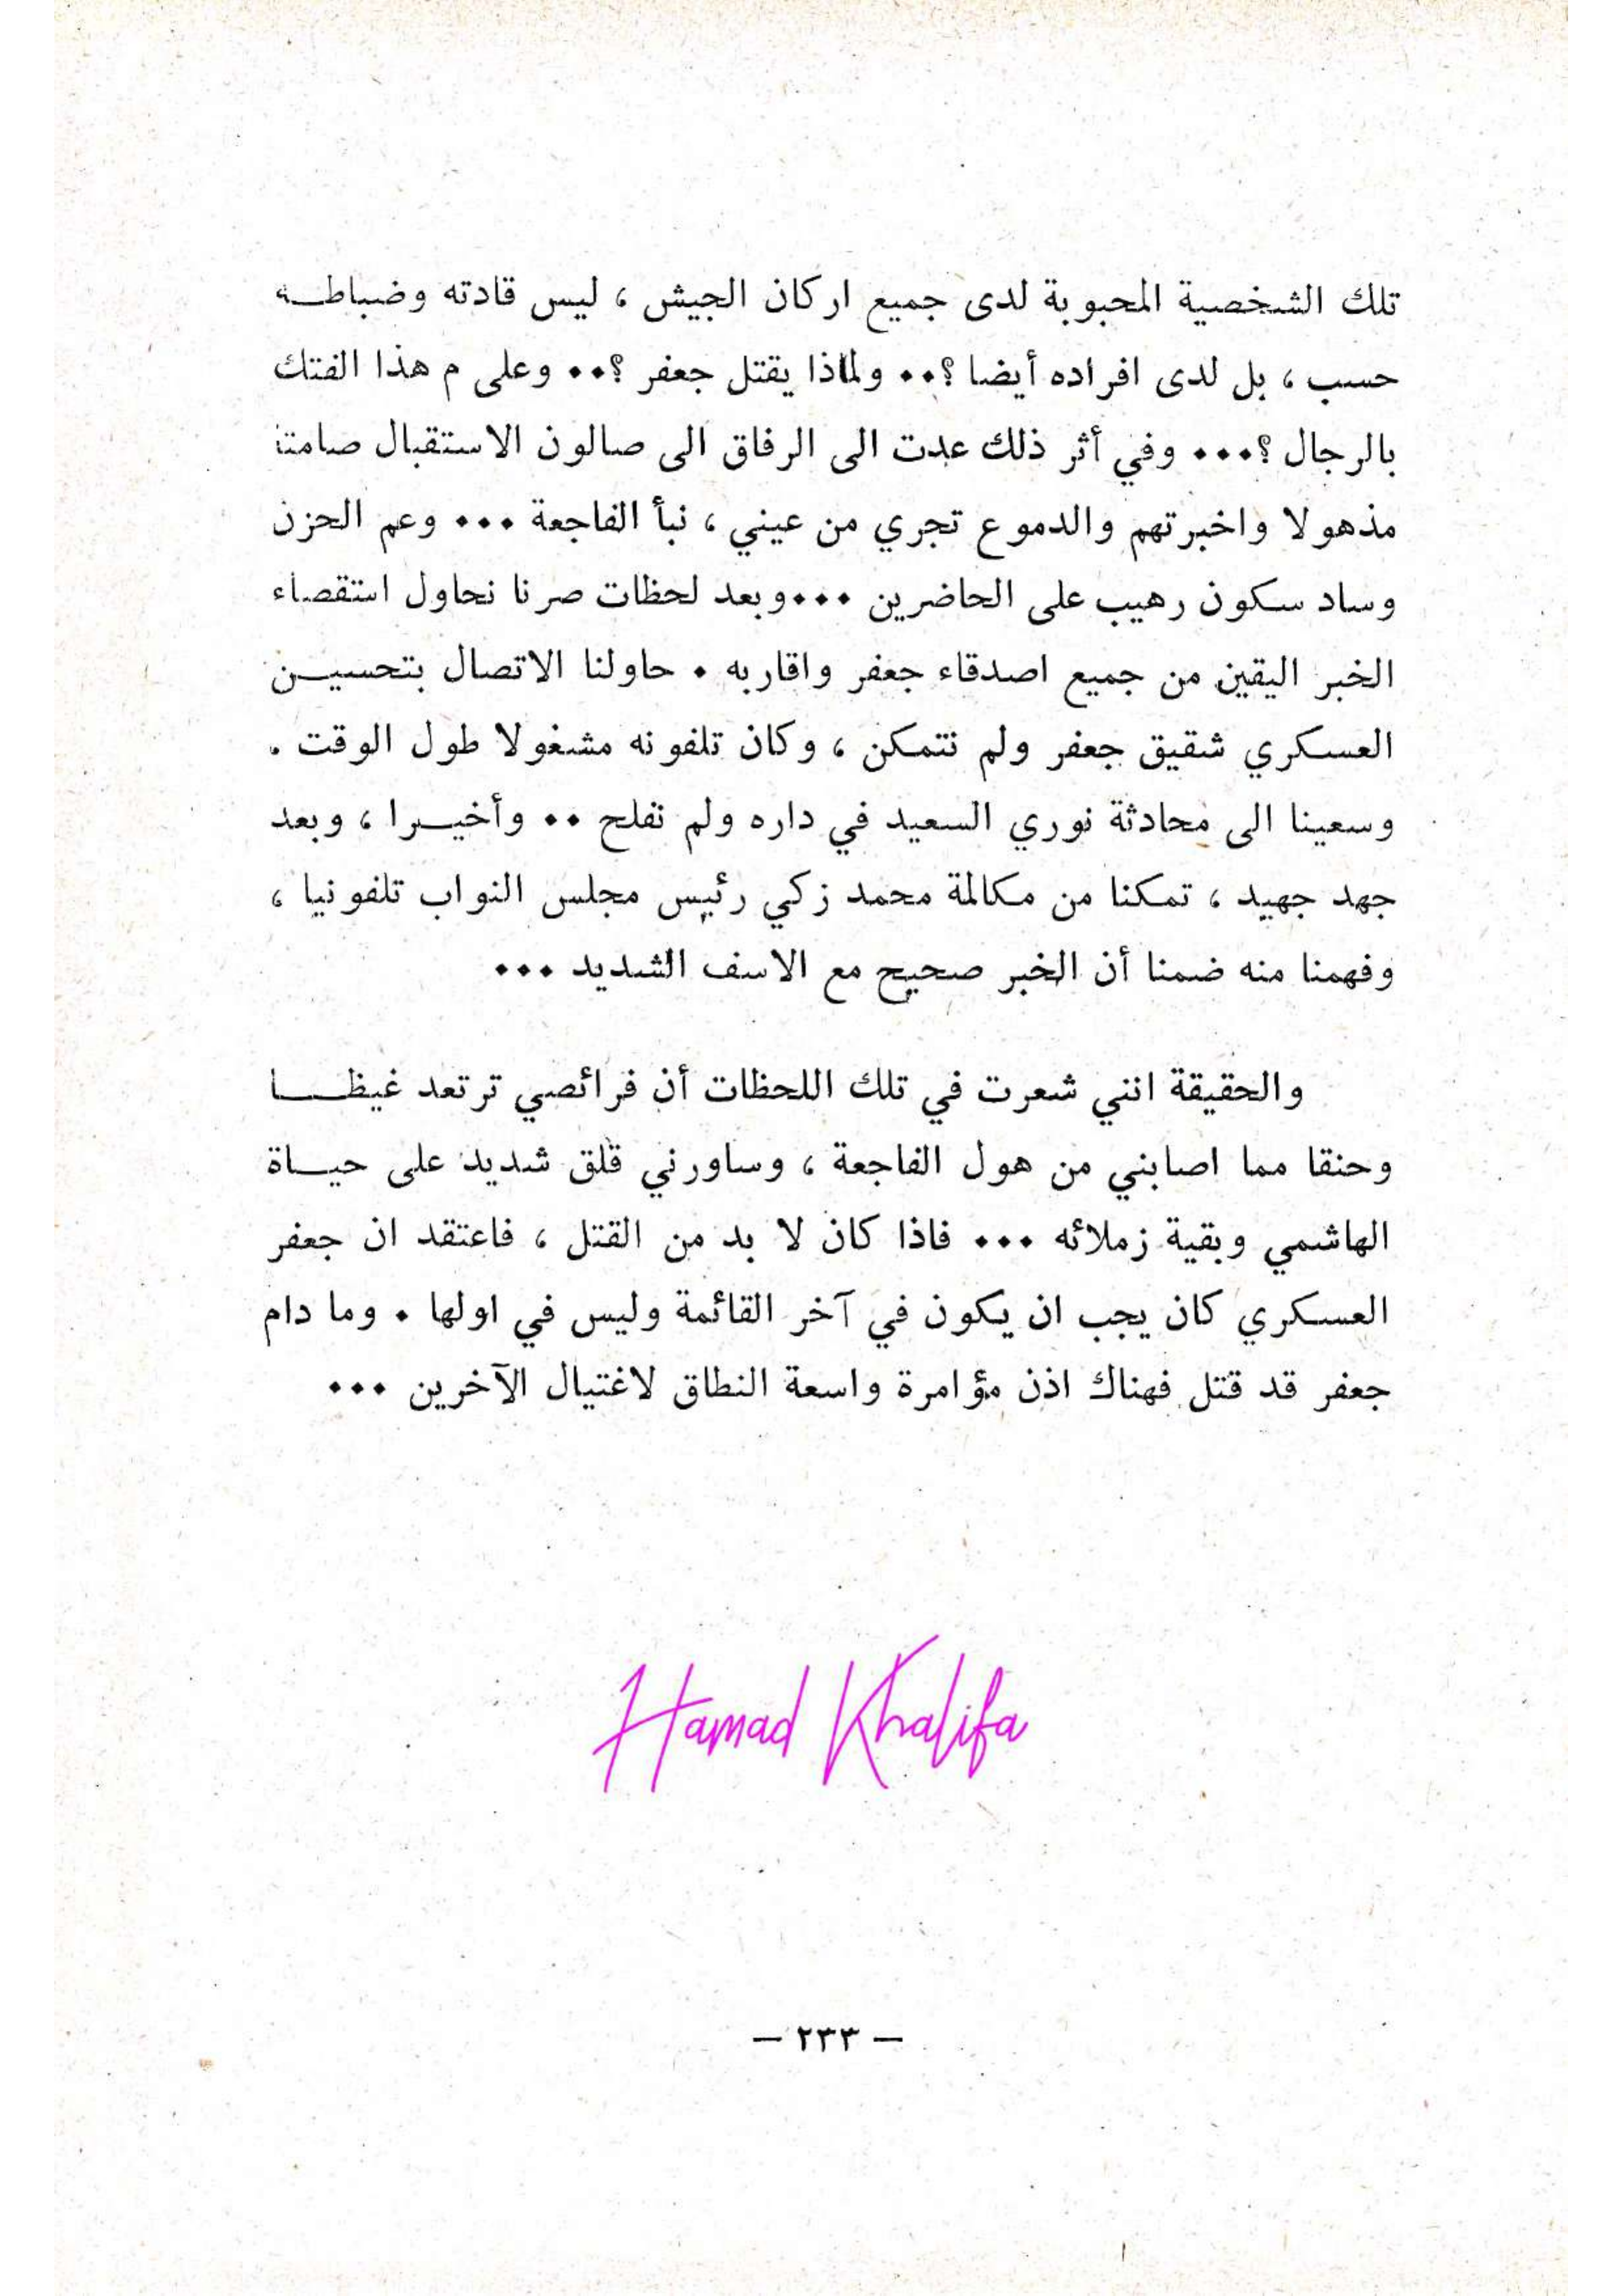 تلك الشخصية المحبوبة لدى جميع اركان الجيش ، ليس قادته وضباطـــه
حسب ، بل لدى افراده أيضا ؟٠٠ ولماذا يقتل جعفر ؟٠٠ وعلى م هذا الفتك
بالرجال ؟٠٠٠ وفي أثر ذلك عدت الى الرفاق الى صالون الاستقبال صامتا
مذهولا واخبرتهم والدموع تجري من عيني ، نبأ الفاجعة ٠٠٠ وعم الحزن
وساد سكون رهيب على الحاضرين ٠٠٠وبعد لحظات صرنا نحاول استقصاء
الخبر اليقين من جميع اصدقاء جعفر واقاربه ٠ حاولنا الاتصال بتحسيــن
العسكري شقيق جعفر ولم نتمكن ، وكان تلفونه مشغولا طول الوقت ٠
وسعينا الى محادثة نوري السعيد في داره ولم نفلح ٠٠ وأخيــرا ، وبعد
جهد جهيد ، تمكنا من مكالمة محمد زكي رئيس مجلس النواب تلفونيا ،
وفهمنا منه ضمنا أن الخبر صحيح مع الاسف الشديد ٠٠٠
والحقيقة انني شعرت في تلك اللحظات أن فرائصي ترتعد غيظـــا
وحنقا مما اصابني من هول الفاجعة ، وساورني قلق شديد على حيــاة
الهاشمي وبقية زملائه ٠٠٠ فاذا كان لا بد من القتل ، فاعتقد ان جعفر
العسكري كان يجب ان يكون في آخر القائمة وليس في اولها ٠ وما دام
جعفر قد قتل فهناك اذن مؤامرة واسعة النطاق لاغتيال الآخرين ٠٠٠
Hamad Khalifa
— ٢٣٣ —